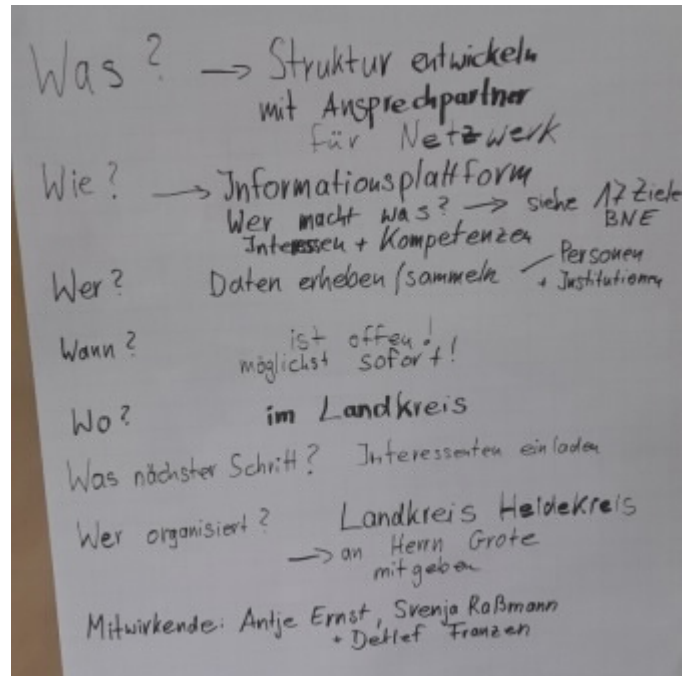 Was? → Struktur entwickeln
mit Ansprechpartner
für Netzwerk
Wie? → Informationsplattform
Wer macht was? → siehe 17 Ziele
BNE
Interessen + Kompetenzen
Wer? Daten erheben/sammeln – Personen
+ Institutionen
Wann? ist offen!
möglichst sofort!
Wo? im Landkreis
Was nächster Schritt? Interessenten einladen
Wer organisiert? Landkreis Heidekreis
→ an Herrn Grote
mitgeben
Mitwirkende: Antje Ernst, Svenja Raßmann
+ Detlef Franzen